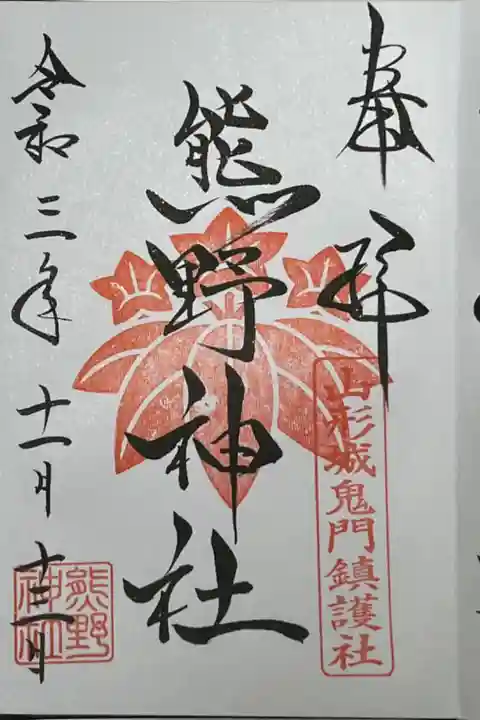 奉拝
山形城鬼門鎮護社
熊野神社
令和三年十一月十三日
熊野
神社